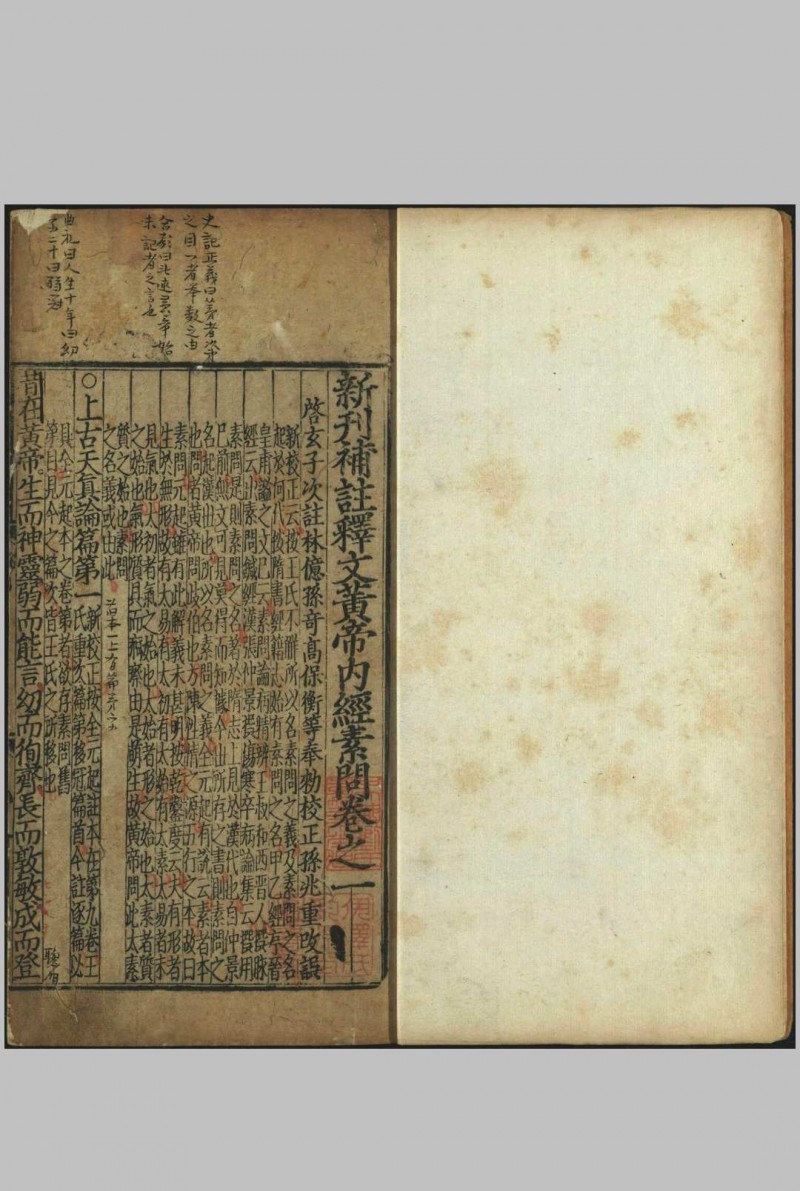 史記正義曰第者次弟
之目一者舉數之由
未記者之言也
曲禮曰人生十年曰幼
新刊補註釋文黃帝內經素問卷之一
啓玄子次註林億孫奇高保衡等奉勑校正孫兆重改誤
新校正云按王氏不解所以名素問之義及素問之名
起於何代按隋書經籍志始有素問之名甲乙經序晉
皇甫謐之文已云素問論病精辨王叔和西晉人撰脉
經云出素問鍼經漢張仲景撰傷寒卒病論集云撰用
素問是則素問之名著於隋志上見於漢代也自仲景
已前無文可見莫得而知據今世所存之書則素問之
名起漢世也所以名素問之義全元起有說云素者本
也問者黃帝問歧伯也方陳性情之源五行之本故曰
素問元起雖有此解義未甚明按乾鑿度云夫有形者
生於無形故有太易有太初有太始有太素太易者未
見氣也太初者氣之始也太始者形之始也太素者質
之始也氣形質具而痾瘵由是萌生故黃帝問此太素
質之始也素問
之名義或由此
○上古天真論篇第一
新校正按全元起註本在第九卷王
氏重次篇第移冠篇首今註逐篇必
具全元起本之卷第者欲存素問舊
第目見今之篇次皆王氏之所移也
昔在黃帝生而神靈弱而能言幼而徇齊長而敦敏成而登